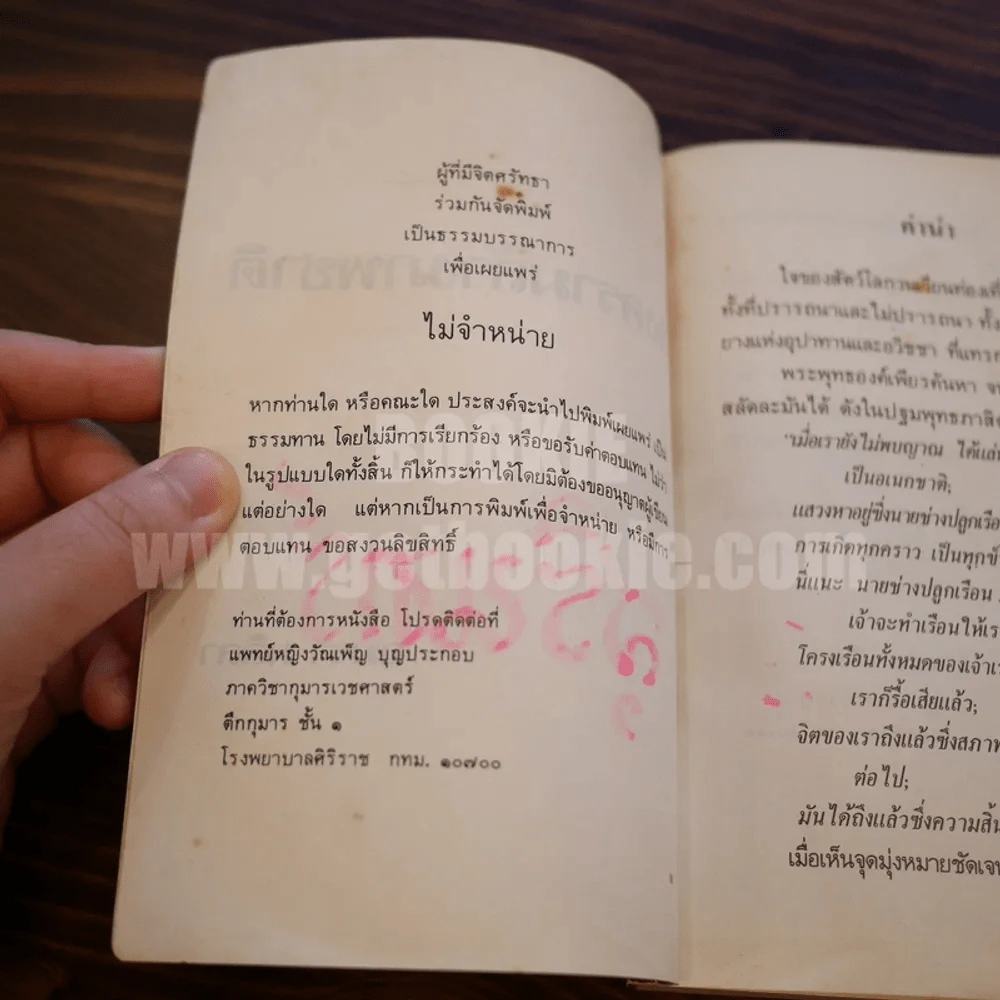 ผู้ที่มีจิตศรัทธา
ร่วมกันจัดพิมพ์
เป็นธรรมบรรณาการ
เพื่อเผยแพร่
ไม่จำหน่าย
หากท่านใด หรือคณะใด ประสงค์จะนำไปพิมพ์เผยแพร่ เป็น
ธรรมทาน โดยไม่มีการเรียกร้อง หรือขอรับค่าตอบแทน ไม่ว่า
ในรูปแบบใดทั้งสิ้น ก็ให้กระทำได้โดยมิต้องขออนุญาตผู้เขียน
แต่อย่างใด แต่หากเป็นการพิมพ์เพื่อจำหน่าย หรือมีการ
ตอบแทน ขอสงวนลิขสิทธิ์
ท่านที่ต้องการหนังสือ โปรดติดต่อที่
แพทย์หญิงวัณเพ็ญ บุญประกอบ
ภาควิชากุมารเวชศาสตร์
ตึกกุมาร ชั้น ๑
โรงพยาบาลศิริราช กทม. ๑๐๗๐๐
www.getbookie.com
คำนำ
ใจของสัตว์โลกวนเวียนท่องเที่
ทั้งที่ปรารถนาและไม่ปรารถนา ทั้ง
ยางแห่งอุปาทานและอวิชชา ที่แทรก
พระพุทธองค์เพียรค้นหา จน
สลัดละมันได้ ดังในปฐมพุทธภาสิ
"เมื่อเรายังไม่พบญาณ ได้แล่น
เป็นอเนกชาติ;
แสวงหาอยู่ซึ่งนายช่างปลูกเรือน
การเกิดทุกคราว เป็นทุกข์
นี่แน่ะ นายช่างปลูกเรือน
เจ้าจะทำเรือนให้เรา
โครงเรือนทั้งหมดของเจ้าเรา
เราก็รื้อเสียแล้ว;
จิตของเราถึงแล้วซึ่งสภาพ
ต่อไป;
มันได้ถึงแล้วซึ่งความสิ้น
เมื่อเห็นจุดมุ่งหมายชัดเจน